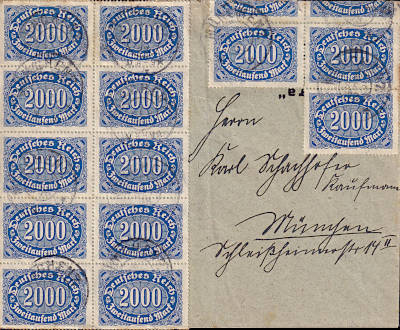 Deutsches Reich Deutsches Reich
2000 2000
Zweitausend Mark Zweitausend Mark
Deutsches Reich Deutsches Reich
2000 2000
Zweitausend Mark Zweitausend Mark
Deutsches Reich Deutsches Reich
2000 2000
Zweitausend Mark Zweitausend Mark
Deutsches Reich Deutsches Reich
2000 2000
Zweitausend Mark Zweitausend Mark
Deutsches Reich Deutsches Reich
2000 2000
Zweitausend Mark Zweitausend Mark
Deutsches Reich Deutsches Reich
2000 2000
Zweitausend Mark Zweitausend Mark
Deutsches Reich
2000
Zweitausend Mark
Herrn
Karl Schachhofer
Kaufmann
München
Schleißheimerstr 14 II